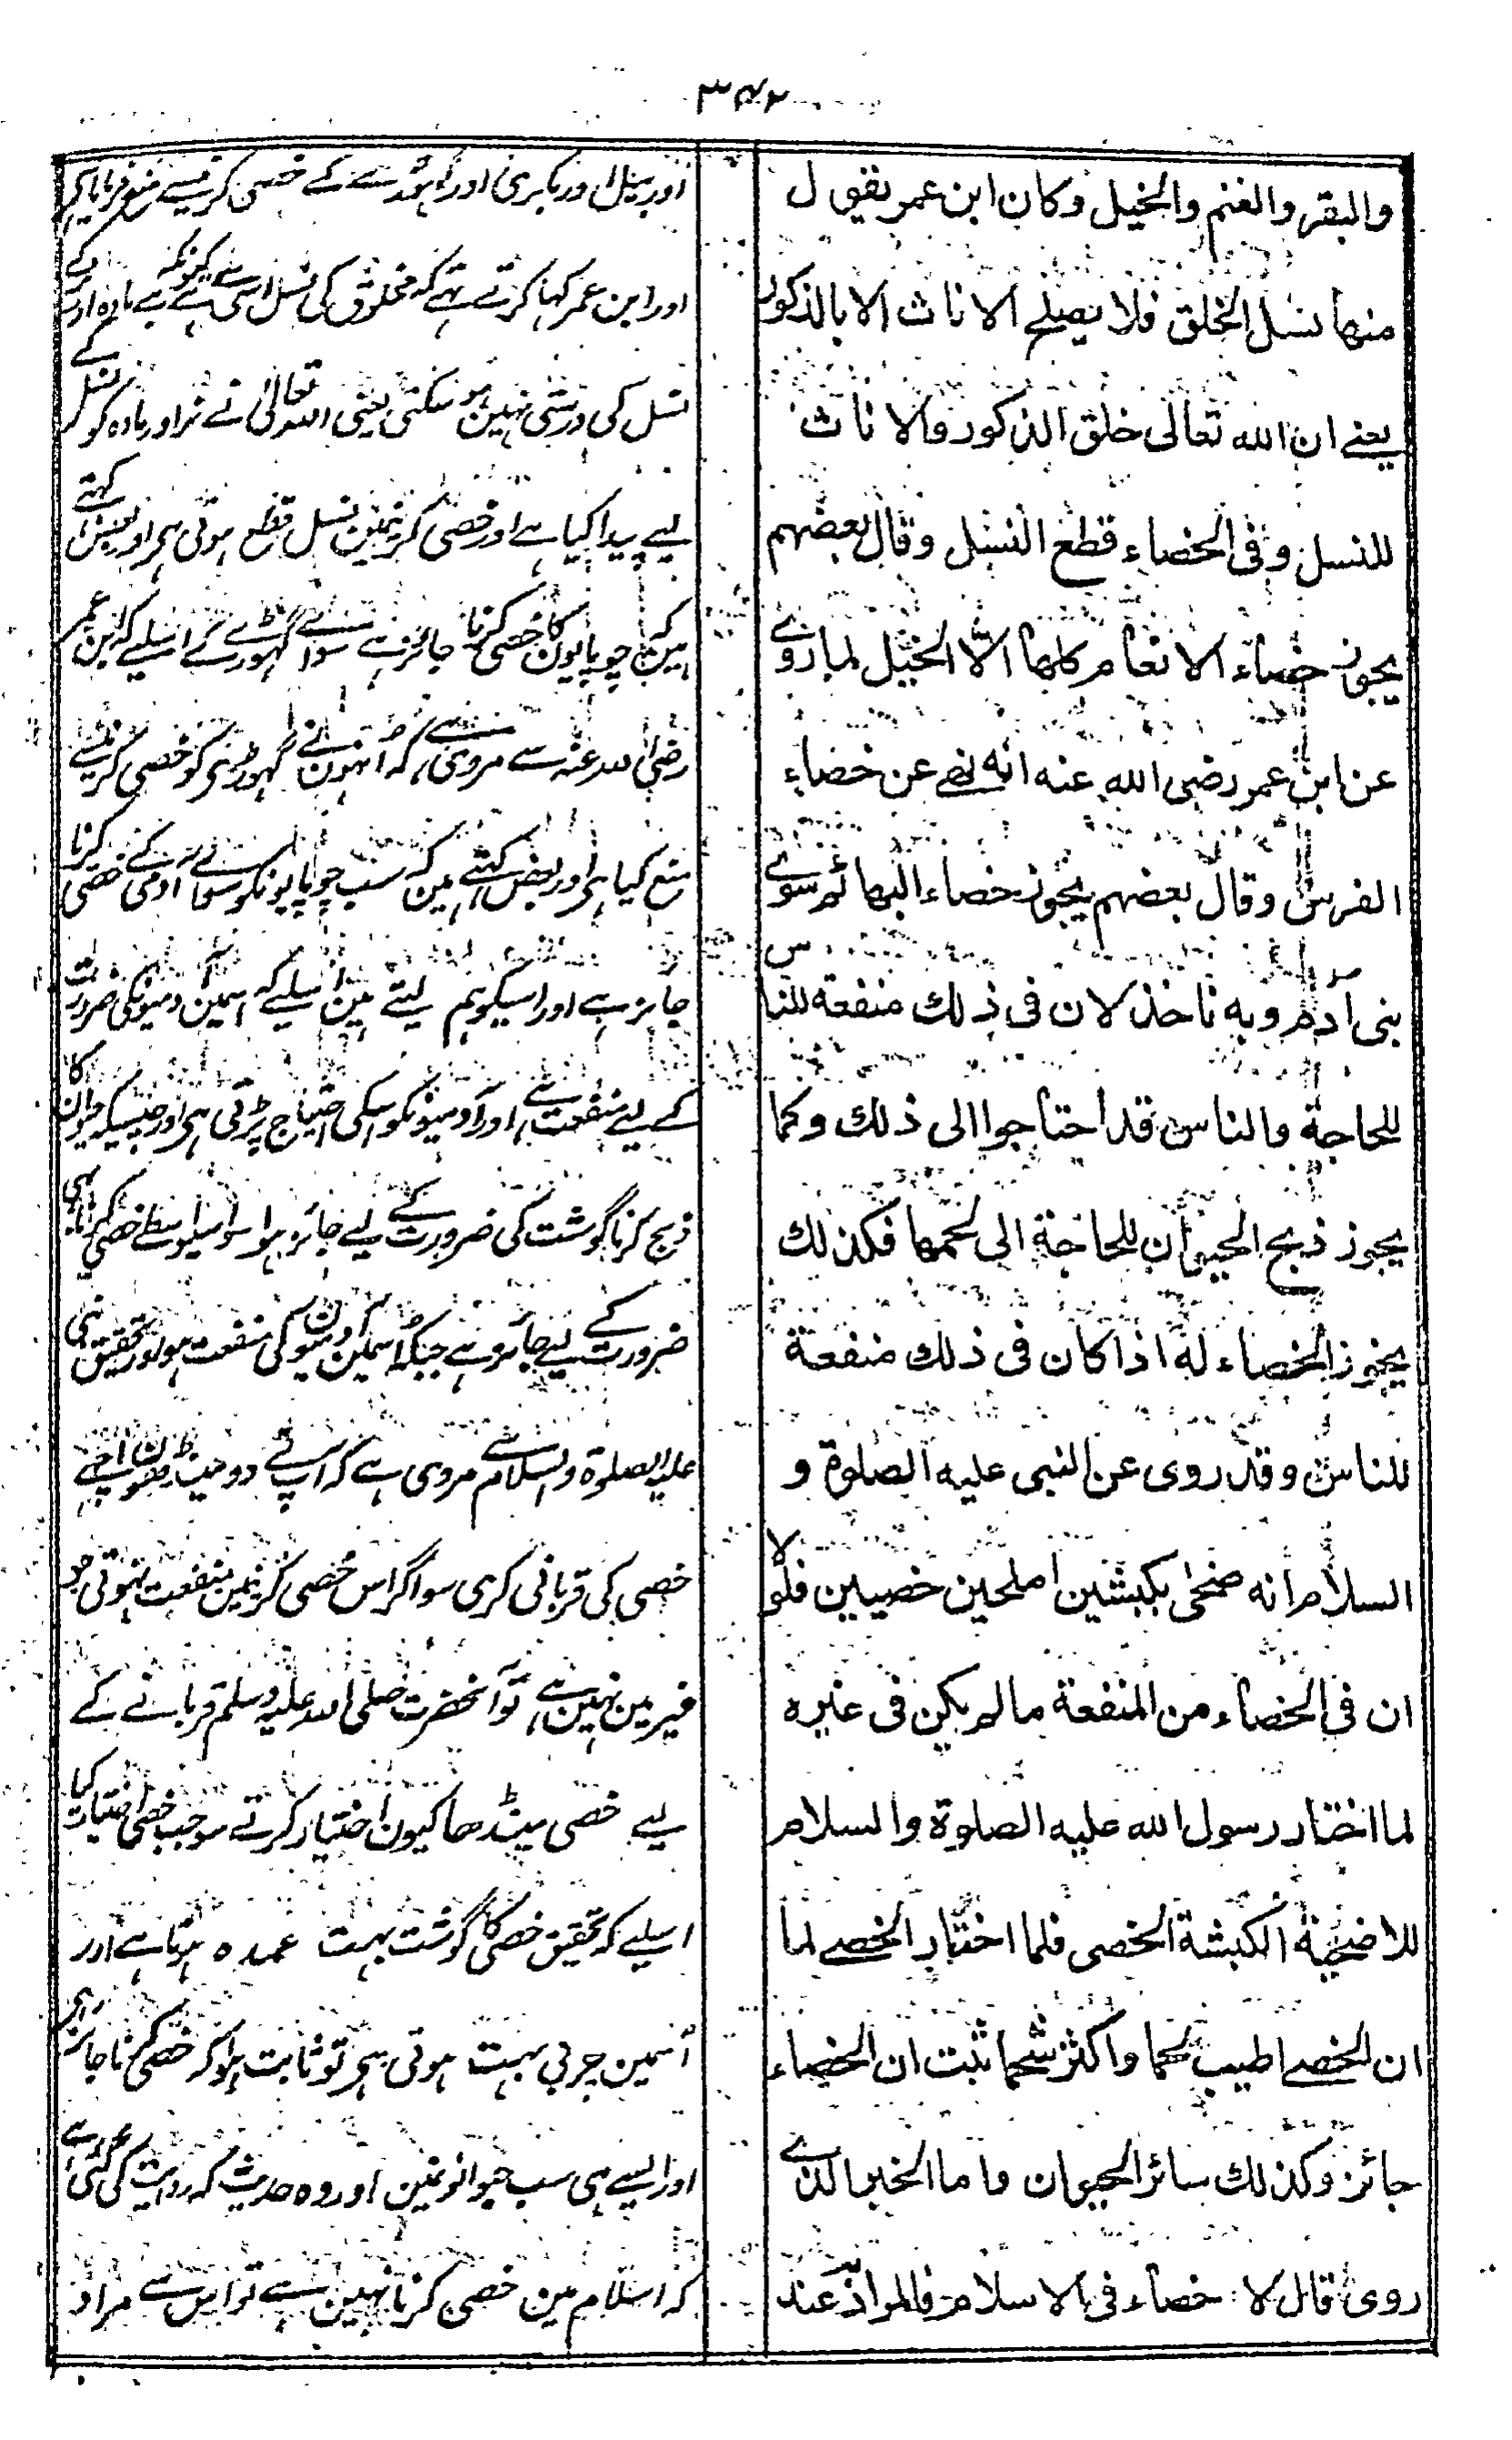 ۳۴۲
والبقر والغنم والخيل وكان ابن عمر يقول
منها نسل الخلق فلا يصلح الاناث الا بالذكور
يعنے ان الله تعالى خلق الذكور والاناث
للنسل وفى الخصاء قطع النسل وقال بعضهم
يجوز خصاء الانعام كلها الّا الخيل لما روے
عن ابن عمر رضى الله عنه انه نهے عن خصاء
الفرس وقال بعضهم يجوز خصاء البهائم سوے
بنى آدم وبه ناخذ لان فى ذلك منفعة للناس
للحاجة والناس قد احتاجوا الى ذلك وكما
يجوز ذبح الحيوان للحاجة الى لحمها فكذلك
يجوز الخصاء له اذا كان فى ذلك منفعة
للناس وقد روى عن النبى عليه الصلوة و
السلام انه ضحى بكبشين املحين خصيين فلولا
ان فى الخصاء من المنفعة ما لم يكن فى غيره
لما اختار رسول الله عليه الصلوة والسلام
للاضحية الكبشة الخصى فلما اختار الخصے لما
ان الخصے اطيب لحما واكثر شحما ثبت ان الخصاء
جائز وكذلك سائر الحيوان واما الخبر الذے
روى قال لا خصاء فى الاسلام فالمراد عند
اور بیل اور بکری اور گہوڑے کے خصی کرنیسے منع فرمایا ہی
اور ابن عمر کہا کرتے تہے کہ مخلوق کی نسل اسی سے ہے کیونکہ بے مادہ اور نر کے
نسل کی درستی نہیں ہو سکتی یعنی اللہ تعالیٰ نے نر اور مادہ کو نسل کے
لیے پیدا کیا ہے اور خصی کرنیمین نسل قطع ہوتی ہی اور بعض کہتے
ہین کہ چوپایون کا خصی کرنا جائز ہے سواے گہوڑے کے اسلیے کہ ابن عمر
رضی اللہ عنہ سے مروی ہے کہ انہون نے گہوڑی کو خصی کرنیسے
منع کیا ہی اور بعض کہتے ہین کہ سب چوپایونکو سواے آدمی کے خصی کرنا
جایز ہے اور اسیکو ہم لیتے ہین اسلیے کہ اسمین آدمیونکی ضرورت
کے لیے منفعت ہے اور آدمیونکو اسکی احتیاج پڑتی ہی اور جیسیکہ حیوان کا
ذبح کرنا گوشت کی ضرورت کے لیے جائز ہوا سو اسیواسطے خصی کرنا بہی
ضرورت کے لیے جائز ہے جبکہ اسمین آدمیون کی منفعت ہو اور تحقیق نبی
علیہ الصلوة والسلام سے مروی ہے کہ آپ نے دو مینڈہون اچہے
خصی کی قربانی کری سو اگر اس خصی کرنیمین منفعت نہوتی جو
غیر مین نہین ہے تو آنحضرت صلی اللہ علیہ وسلم قربانے کے
لیے خصی مینڈھا کیون اختیار کرتے سو جب خصی اختیار کیا
اسلیے کہ تحقیق خصی کا گوشت بہت عمدہ ہوتا ہے اور
اسمین چربی بہت ہوتی ہی تو ثابت ہوا کہ خصی کرنا جائز ہی
اور ایسے ہی سب حیوانونمین اور وہ حدیث کہ روایت کی گئی ہے
کہ اسلام مین خصی کرنا نہین ہے تو اس سے مراد